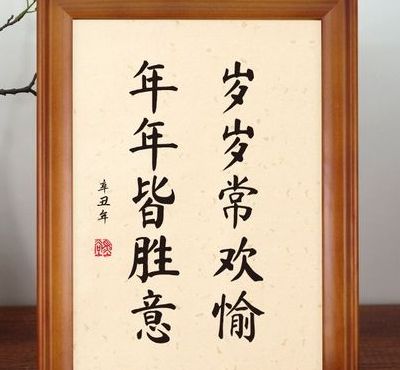 岁岁常欢愉
年年皆胜意
辛丑年